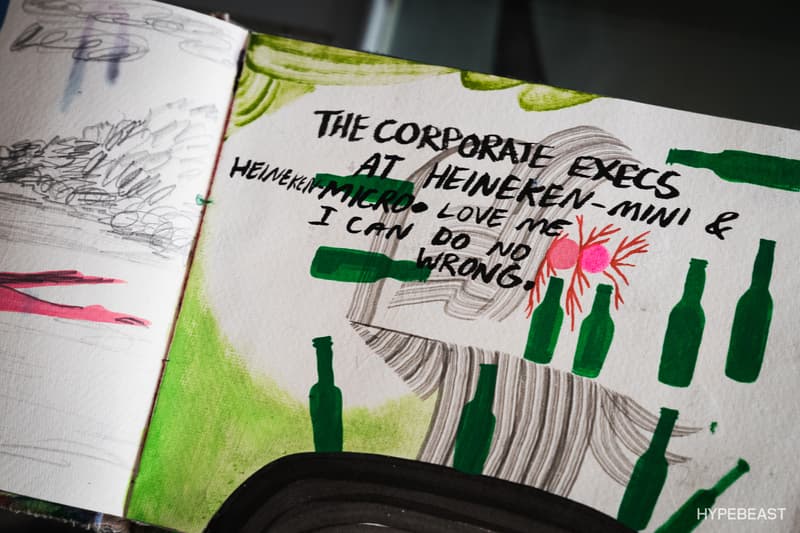 THE CORPORATE EXECS
AT HEINEKEN-MINI &
HEINEKEN-MICRO. LOVE ME
I CAN DO NO
WRONG.
HYPEBEAST